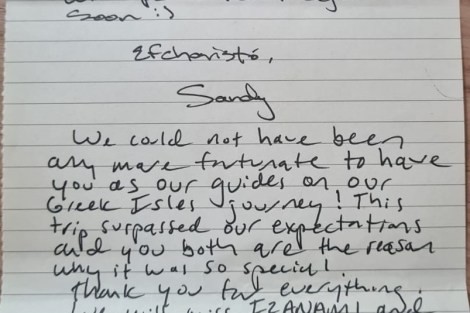 soon :)
Efcharistó,
Sandy
We could not have been
any more fortunate to have
you as our guides on our
Greek Isles journey! This
trip surpassed our expectations
and you both are the reason
why it was so special!
Thank you for everything.
We will miss IZANAMI and